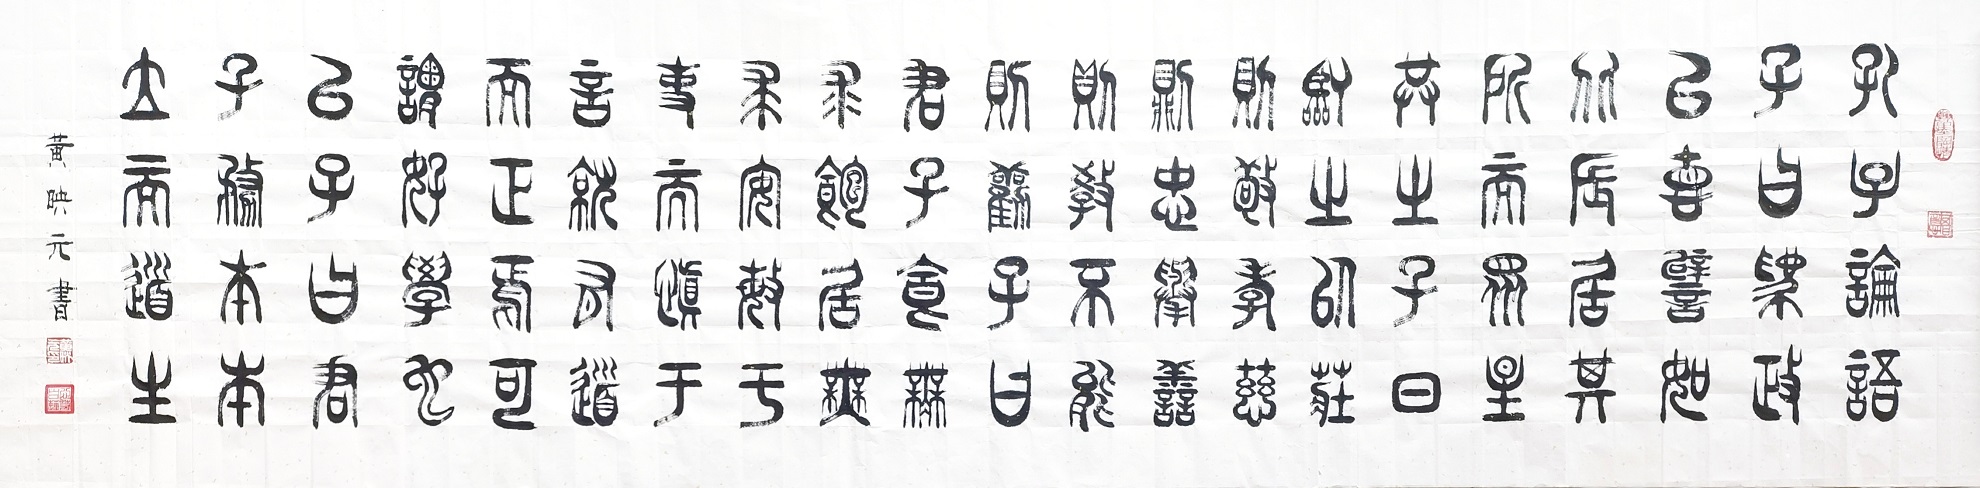 孔子論語
子曰為政
以德譬如
北辰居其
所而眾星
共之子曰
臨之以莊
則敬孝慈
則忠舉善
則教不能
則勸子曰
君子食無
求飽居無
求安敏于
事而慎于
言就有道
而正焉可
謂好學也
已子曰君
子務本本
立而道生
黃映元書